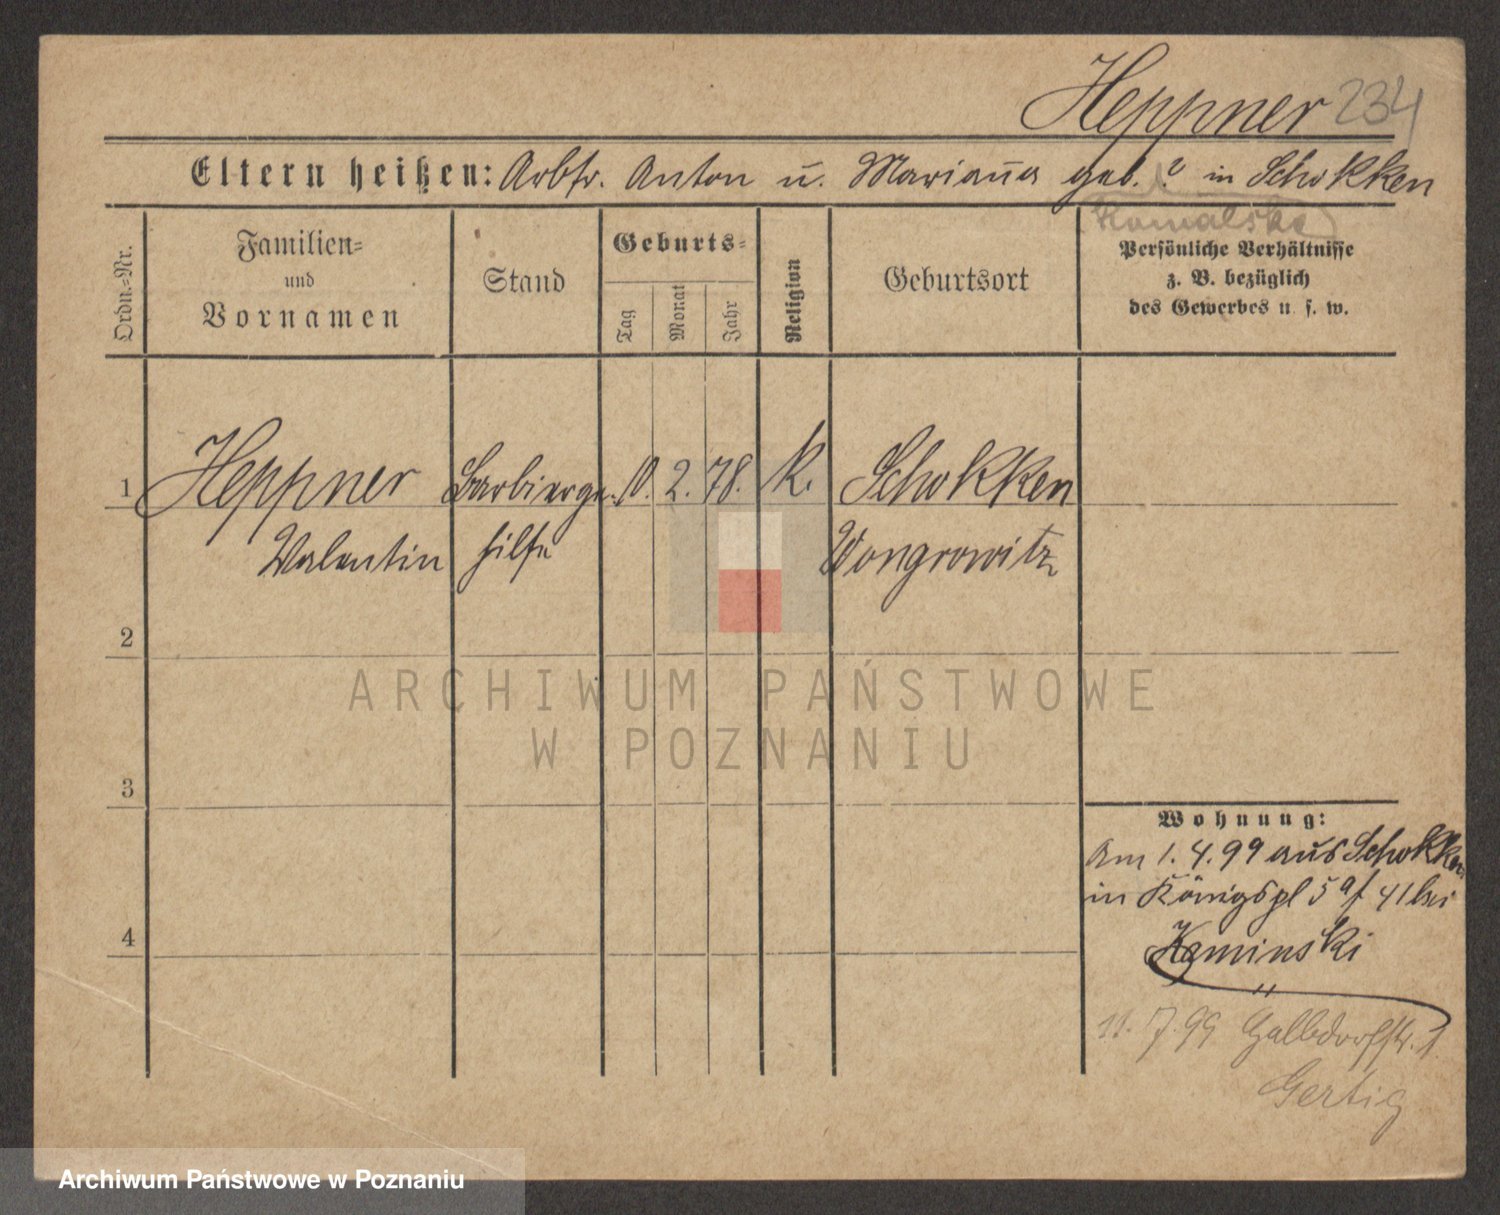 Heppner 234
Eltern heißen: Arbtr. Anton u. Marianna geb. ? in Schokken
Kowalska
Ordn.-Nr.
Familien-
und
Vornamen
Stand
Geburts-
Tag
Monat
Jahr
Religion
Geburtsort
Persönliche Verhältnisse
z. B. bezüglich
des Gewerbes u. s. w.
1 Heppner Barbierge- 10. 2. 78. k. Schokken
Valentin hilfe Wongrowitz
2
3
4
Wohnung:
Am 1. 4. 99 aus Schokken
in Königspl 5 41 bei
Kaminski
11. 7. 99 1.
Gertig
ARCHIWUM PAŃSTWOWE
W POZNANIU
Archiwum Państwowe w Poznaniu